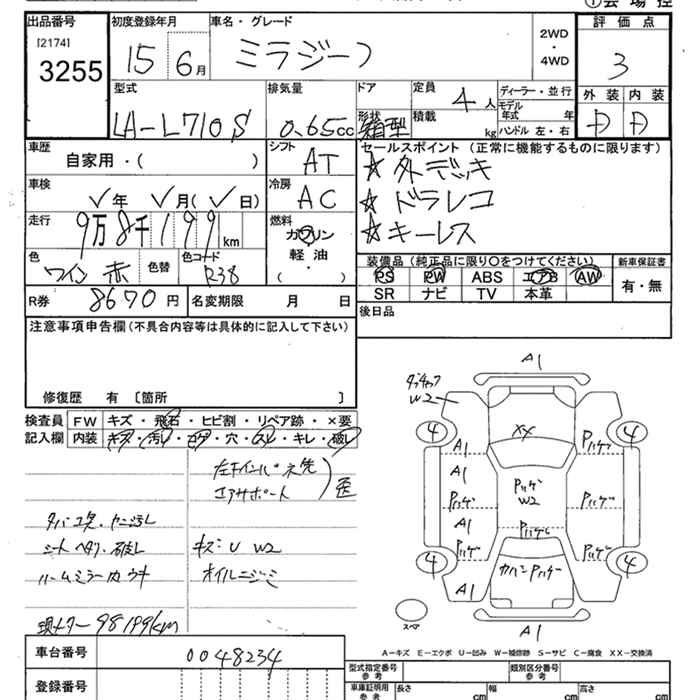 ①会場控
出品番号 初度登録年月 車名・グレード 評価点
[2174]
3255
15 6月 ミラジーノ 2WD・4WD 3
型式 排気量 ドア 定員 ディーラー・並行 外装 内装
LA-L710S 0.65cc 形状 箱型 4人 積載 kg モデル年式 年 ハンドル 左・右 D D
車歴 自家用・( ) シフト AT セールスポイント (正常に機能するものに限ります)
☆外デッキ
車検 年 月( 日) 冷房 AC ☆ドラレコ
走行 9万8千199km 燃料 ガソリン ☆キーレス
色 ワイン 赤 色替 色コード R38 軽油・( )
装備品 (純正品に限り○をつけてください) 新車保証書
PS PW ABS エアB AW 有・無
SR ナビ TV 本革
R券 8670円 名変期限 月 日 後日品
注意事項申告欄 (不具合内容等は具体的に記入して下さい)
修復歴 有 [箇所 ]
検査員記入欄 FW キズ・飛石・ヒビ割・リペア跡・×要
内装 キズ・汚レ・コゲ・穴・スレ・キレ・破レ
エアサポート
シートヘタリ・破レ キズ:U W2
ルームミラーカウキ オイルニジミ
現メーター98199km
車台番号 0048234
登録番号
A1
W2
4 4
A1 XX Pハゲ
A1
Pハゲ Pハゲ W2 Pハゲ
A1 Pハゲ
Pハゲ Pハゲ
4 4
A1
スペア A1
A-キズ E-エクボ U-凹み W-補修跡 S-サビ C-腐食 XX-交換済
型式指定番号 参考 類別区分番号 参考
車庫証明用 参考 長さ cm 幅 cm 高さ cm